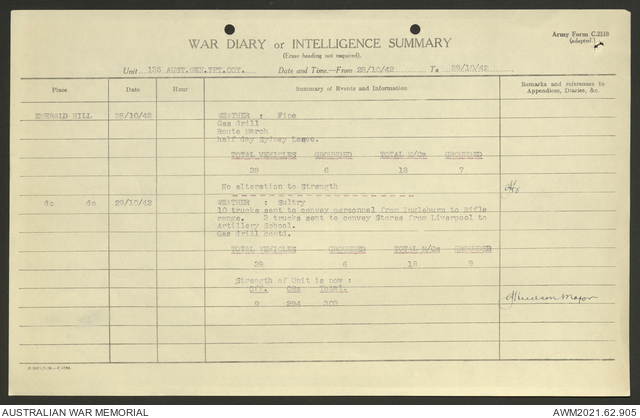 Army Form C.2118
(adapted.)
WAR DIARY or INTELLIGENCE SUMMARY
(Erase heading not required).
Unit 136 AUST.GEN.TPT.COY. Date and Time—From 28/10/42 To 29/10/42
Place Date Hour Summary of Events and Information Remarks and references to Appendices, Diaries, &c.
EMERALD HILL 28/10/42 WEATHER : Fine
Gas drill
Route March
half day Sydney Leave.
TOTAL VEHICLES GROUNDED TOTAL M/Cs GROUNDED
29 6 18 7
No alteration to Strength
do do 29/10/42 WEATHER : Sultry
10 trucks sent to convey personnel from Ingleburn to Rifle
range. 3 trucks sent to convey Stores from Liverpool to
Artillery School.
Gas drill contd.
TOTAL VEHICLES GROUNDED TOTAL M/Cs GROUNDED
29 6 18 9
Strength of Unit is now :
Off. ORs Total.
9 294 303
Major
AUSTRALIAN WAR MEMORIAL AWM2021.62.905